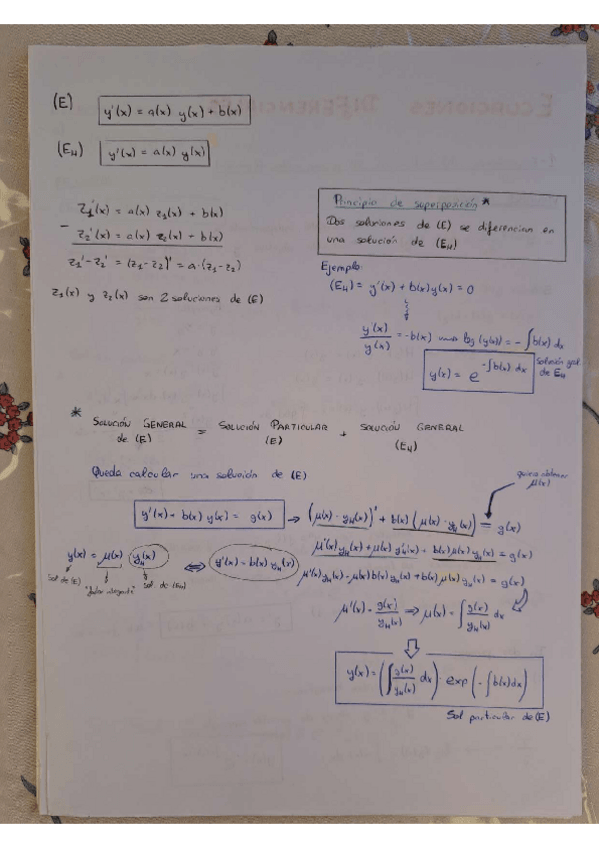 (E) y'(x) = a(x) y(x) + b(x)
(E_H) y'(x) = a(x) y(x)
z₁'(x) = a(x) z₁(x) + b(x)
- z₂'(x) = a(x) z₂(x) + b(x)
z₁' - z₂' = (z₁ - z₂)' = a·(z₁ - z₂)
z₁(x) y z₂(x) son 2 soluciones de (E)
Principio de superposición *
Dos soluciones de (E) se diferencian en
una solución de (E_H)
Ejemplo:
(E_H) = y'(x) + b(x) y(x) = 0
y'(x)/y(x) = -b(x) ⇝ log (y(x)) = -∫b(x) dx
y(x) = e^(-∫b(x) dx)
Solución gral.
de E_H
* SOLUCIÓN GENERAL de (E) = SOLUCIÓN PARTICULAR (E) + SOLUCIÓN GENERAL (E_H)
Queda calcular una solución de (E)
quiero obtener
μ(x)
y'(x) + b(x) y(x) = g(x) → (μ(x)·y_H(x))' + b(x) (μ(x)·y_H(x)) = g(x)
μ'(x) y_H(x) + μ(x) y_H'(x) + b(x) μ(x) y_H(x) = g(x)
y(x) = μ(x) y_H(x) ⇔ y'(x) = b(x) y_H(x)
Sol de (E)
Sol de (E_H)
μ'(x) y_H(x) - μ(x) b(x) y_H(x) + b(x) μ(x) y_H(x) = g(x)
μ'(x) = g(x)/y_H(x) ⇒ μ(x) = ∫ g(x)/y_H(x) dx
y(x) = (∫ g(x)/y_H(x) dx) · exp (-∫b(x)dx)
Sol particular de (E)